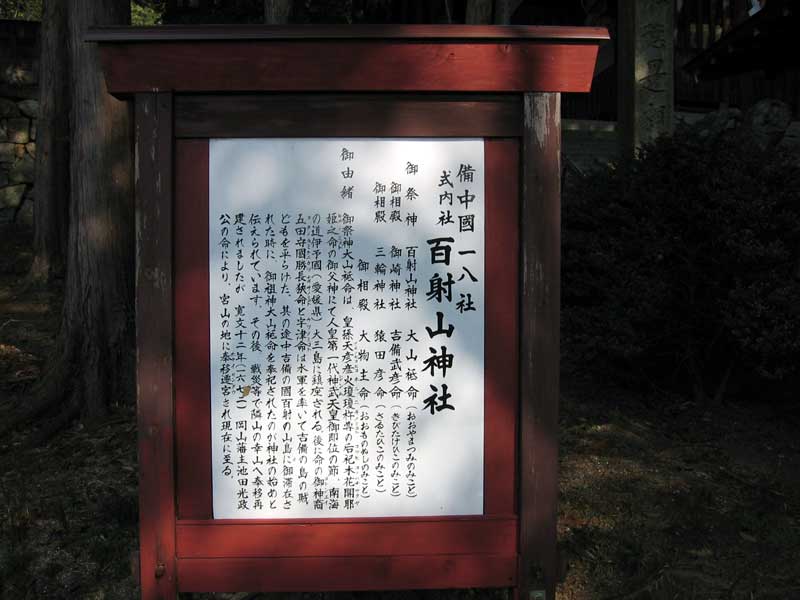 備中國一八社
式内社
百射山神社
御祭神 百射山神社 大山祗命(おおやまつみのみこと)
御相殿 御崎神社 吉備武彦命(きびたけひこのみこと)
御相殿 三輪神社 猿田彦命(さるたひこのみこと)
御相殿 大物主命(おおものぬしのみこと)
御由緒
御祭神大山祗命は、皇孫天彦彦火瓊瓊杵尊の后祀木花開耶
姫之命の御父神にて人皇第一代神武天皇御即位の節、南海
の道伊予國(愛媛県)大三島に鎮座される。後に命の御神裔
五田守國勝長狭命と宇津命は水軍を率いて吉備の島の賊
どもを平らげた、其の途中吉備の國百射の山島に御滞在さ
れた時に、御祖神大山祗命を奉祀されたのが神社の始めと
伝えられています。その後、戦災等で隣山の幸山へ奉移再
建されましたが、寛文十二年(一六七二)岡山藩主池田光政
公の命により、宮山の地に奉移遷宮され現在に至る。